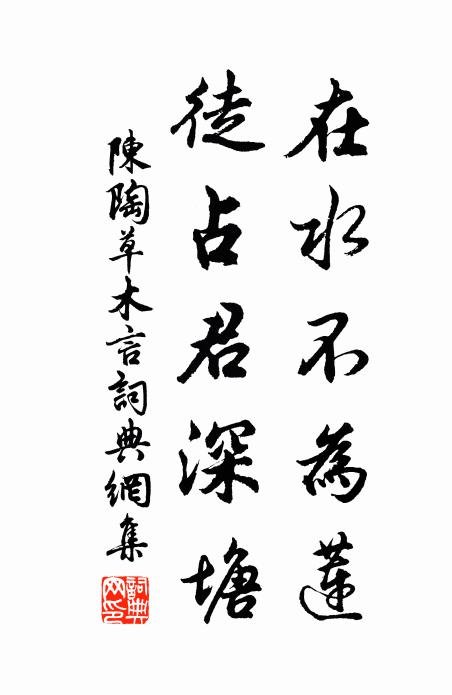 在水不為蓮
徒占君深塘
陳陶草木言詞典網集
詞典網印